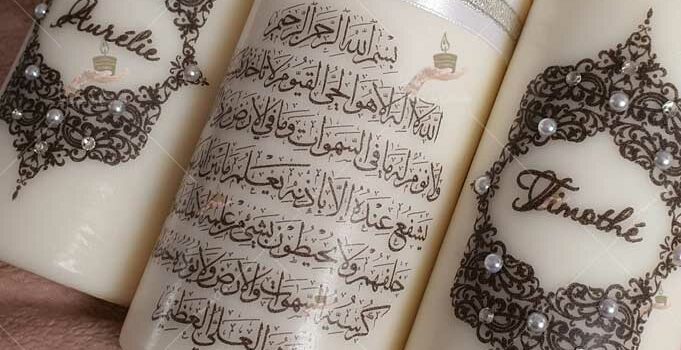 Aurélie
بسم الله الرحمن الرحيم
الله لا إله إلا هو الحي القيوم لا تأخذه
ولا نوم له ما في السموات وما في الأرض
يشفع عنده إلا بإذنه يعلم ما بين
خلفهم ولا يحيطون بشيء من علمه إلا
كرسيه السموات والأرض ولا يؤده
العلي العظيم
Timothé